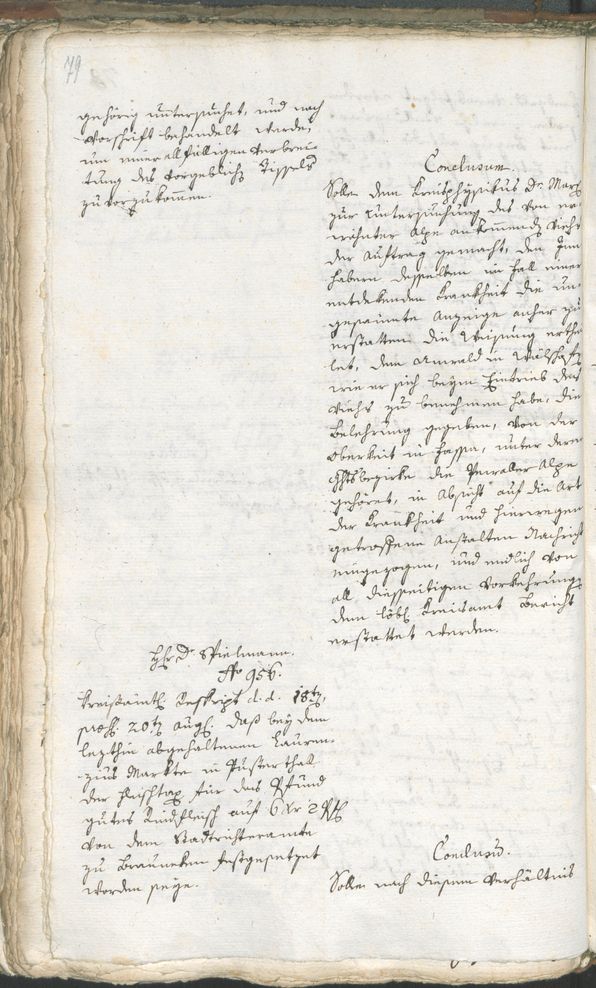 79
gehörig untersuchet, und nach
Vorschrift behandelt werde,
um einer allfälligen Verbrei-
tung des vorgeblichen Zissels
zuvorzukommen.
Conclusum.
Solle dem Kreisphysikus Dr. Marx
zur Untersuchung des von er-
wähnter Alpe ankommend Viehs
der Auftrag gemacht, den Inn-
habern desselben im fall einer
entdekenden Krankheit die un-
gesäumte Anzeige anher zu
erstatten die Weisung erthei-
let, dem Anwald in
wie er sich beym Eintrieb des
Viehs zu benehmen habe, die
Belehrung gegeben, von der
Oberkeit in Fassa, unter deren
Ghtsbezirke die Alpe
gehöret, in Absicht auf die Art
der Krankheit und hierwegen
getroffene Anstalten Nachricht
eingezogen, und endlich von
all diesseitigen Vorkehrungen
dem löbl. Kreisamt Bericht
erstattet werden.
Hr. Dr. Spielmann.
No 956.
Kreisämtl. Reskript d. d. 18ten,
praes. 20ten Aug. daß bey dem
lezthin abgehaltenen Lauren-
zius Markte in Pusterthal
der Fleischtax für das Pfund
gutes Rindfleisch auf 6 Xr 2
von dem Stadtrichteramte
zu Braunecken festgesetzet
worden seye.
Conclusum.
Solle nach diesem Verhältnis